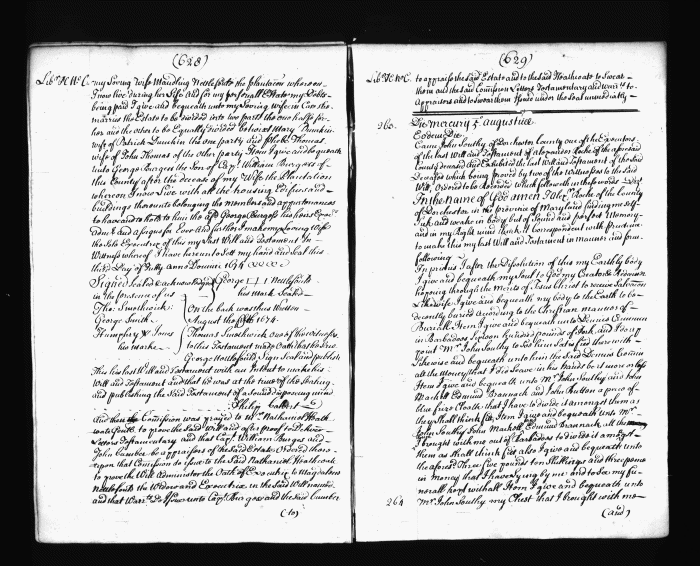 (628)
Lib^r H.W.C. my Loving wife Maudling Nettlefould the plantacon whereon
I now live during her Life And for my personall Estate my Debts
being paid I give and bequeath unto my Loving wife in Case she
marries the Estate to be divided into two parts the one halfe for
her and the other to be Equally divided betwixt Mary Dunkin
wife of Patrick Dunkin the one party and Phebe Thomas
wife of John Thomas of the other party Item I give and bequeath
unto George Burges the Son of Cap^t William Burges of
this County after the decease of my Wife the Plantation
whereon I now Live with all the housing Edifices and
buildings thereunto belonging the members and appurtenances
to have and to hold to him the af^d George Burges his heires
and assignes for Ever And further I make my Loving Wife
the Sole Executrix of this my Last Will and Testament In
Witness whereof I have hereunto Set my hand and Seal this
third Day of July Anno Domini 1674
Signed sealed & acknowledged George Nettlefould
in the presence of us his mark Sealed
Tho: Smithwick On the back was thus Written
George Smith August the 1674.
Humphry Jones Thomas Smithwick one of the witnesses
his marke to this Testament made Oath that he did see
George Nettlefould Sign Seal and publish
This his last Will and Testament with an Intent to make his
Will and Testament and that he was at the time of the Sealing
and publishing the Said Testament of a Sound disposing mind
Philip Calvert
And then Comission was prayed to M^r Nathaniel Heath
cote to prove the Said Will and after proof to
Letters Testamentary and that Cap^t William Burges and
John Cumber be appraisers of the Said Estate Ordered there
upon that Comission do issue to the Said Nathaniel Heathcote
to prove the Will Administer the Oath of Executrix to Magdalene
Nettlefould the Widow and Executrix in the Said Will named
and that Warr^t do Issue unto Cap^t Burges and the said Cumber
(to)
(629)
Lib^r H.W.C. to appraise the Said Estate and to the Said Heathcote to Swear
them and the Said Comission Letters Testamentary and warr^t to
Appraisers and to Swear them Issue under the Seal immediately
260. Die mercury 5 augusti
Eodem Die
Came John Southy of Dorchester County one of the Executors
of the last Will and Testament of Alexander Roche of the aforesaid
County Deceased and Exhibited the last Will and Testament of the Said
Deceased which being proved by two of the Witnesses to the Said
Will, Ordered to be Recorded which followeth in these words
In the name of God amen I Alex^r Roche of the County
of Dorchester in the province of Maryland finding my self
Sick and weake in body but of Sound and perfect Memory
and in my Right mind think it Correspondent with prudence
to make this my last Will and Testament in Manner and form
following
Inprimis I after the Dissolution of this my Earthly body
I give and bequeath my Soul to God my Creator & Redeemer
hopeing through the merits of Jesus Christ to receive Salvation
Likewise I give and bequeath my body to the Earth to be
decently buried According to the Christian manner of
Buriall Item I give and bequeath unto Dennis
in Barbados hundred pounds of Pork, and I do ap
point M^r John Southy to See him Satisfied therewith
Likewise and bequeath unto him the Said Dennis
all the money that I do Leave in his hands be it more or less
Item I give and bequeath unto M^r John Southy and John
Mackell Edmund Brannack and John Hutton a piece of
blue Cloath that I have to divide it amongst them as
they Shall think fit Item I give and bequeath unto M^r
John Southy John Mackell Edmund Brannack all the
I brought with me out of Barbadoes to divide it amongst
them as Shall think fit also I give and bequeath unto
the afores^d Three five pounds ten Shillings and three pence
in Money that I have lying by me and to See my fu
nerall kept withall Item I give and bequeath unto
264 M^r John Southy my Chest that I brought with me
(and)